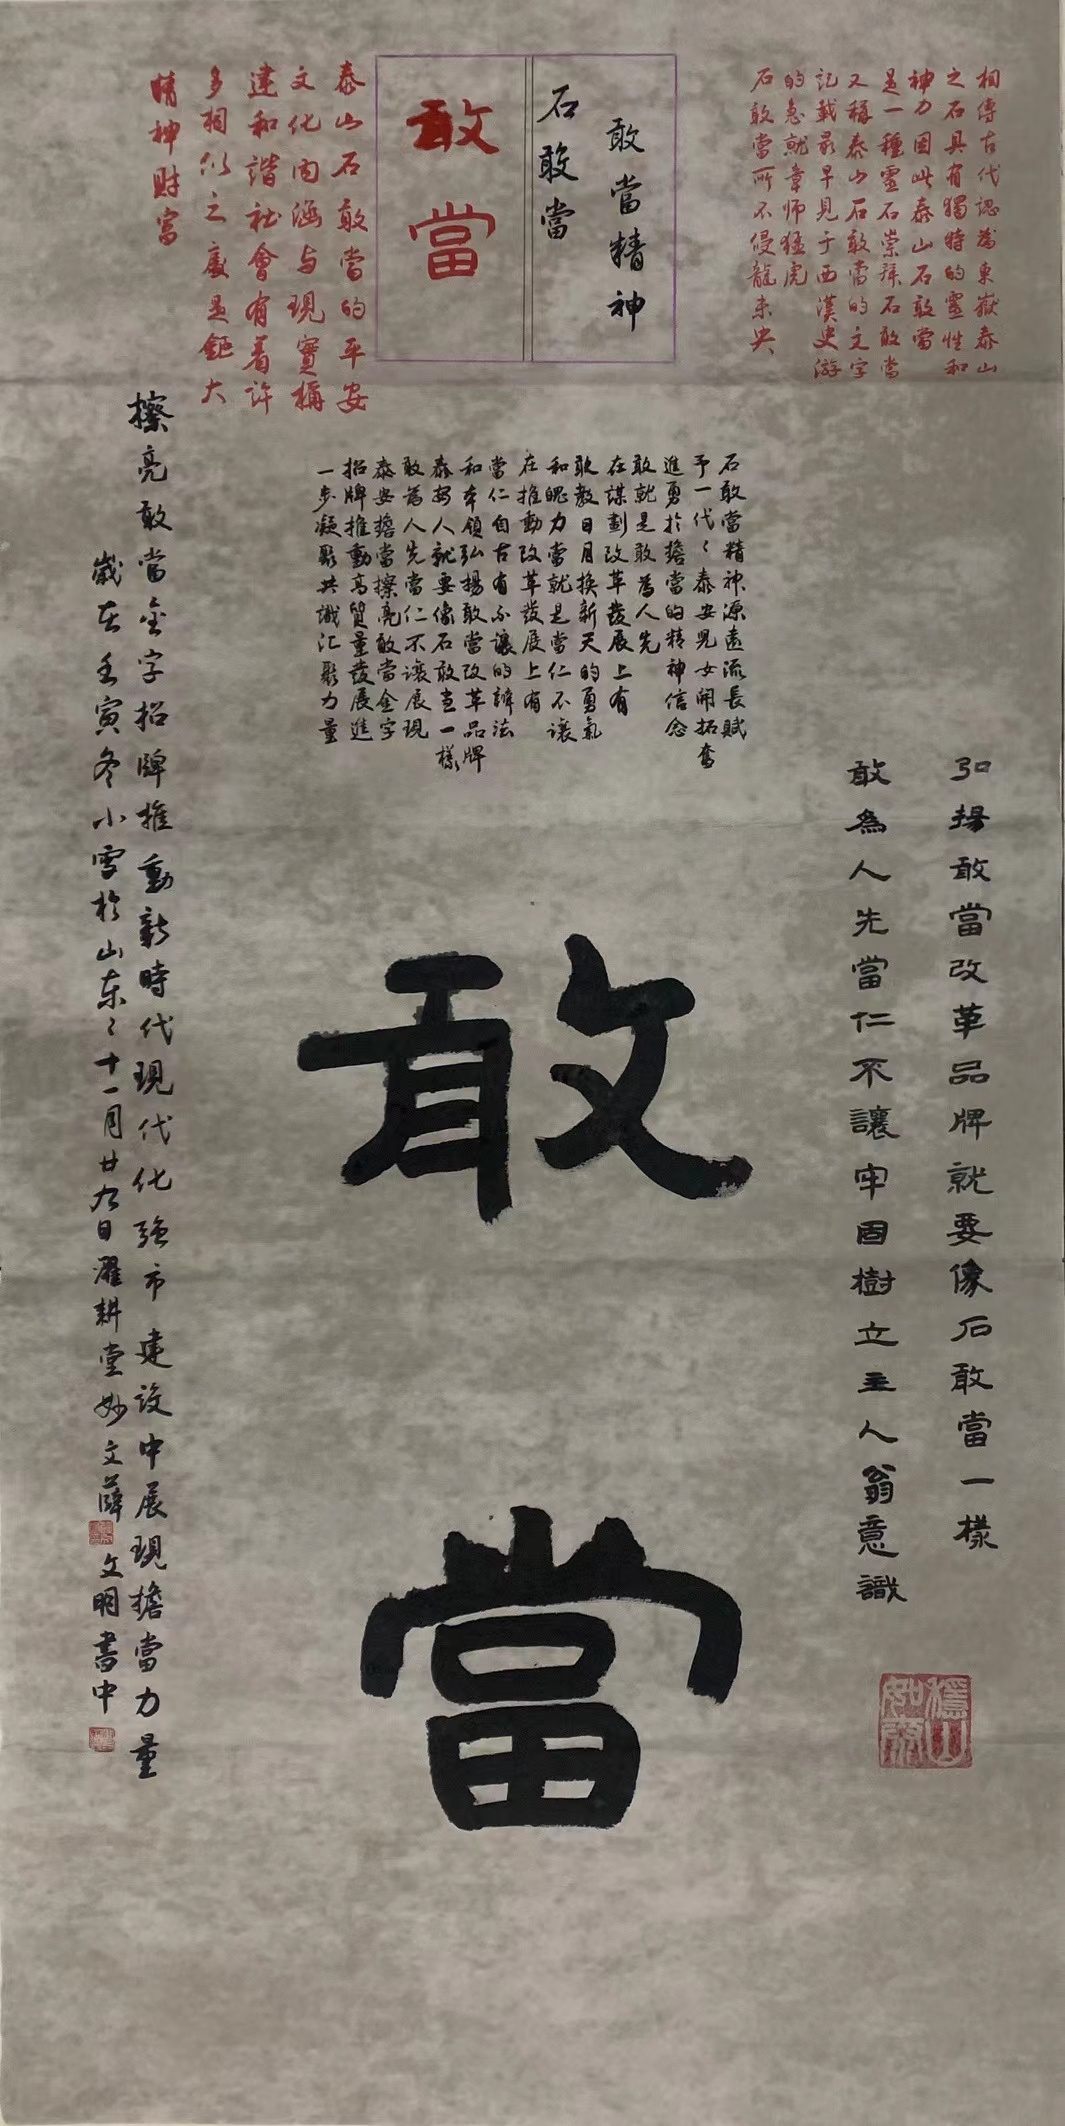 相傳古代認為東嶽泰山
之石具有獨特的靈性和
神力因此泰山石敢當
是一種靈石崇拜石敢當
又稱泰山石敢當的文字
記載最早見于西漢史游
的急就章师猛虎
石敢當所不侵龍未央
敢當精神
石敢當
敢當
泰山石敢當的平安
文化内涵与現實構
建和諧社會有着许
多相似之處是鉅大
精神财富
石敢當精神源遠流長賦
予一代〻泰安兒女開拓奮
進勇於擔當的精神信念
敢就是敢為人先
在謀劃改革發展上有
敢教日月换新天的勇氣
和魄力當就是當仁不讓
在推動改革發展上有
當仁自古有不讓的辦法
和本領弘揚敢當改革品牌
泰安人就要像石敢當一樣
敢為人先當仁不讓展現
泰安擔當擦亮敢當金字
招牌推動高質量發展進
一步凝聚共識汇聚力量
弘揚敢當改革品牌就要像石敢當一樣
敢為人先當仁不讓牢固樹立主人翁意識
敢當
擦亮敢當金字招牌推動新時代現代化强市建设中展現擔當力量
歲在壬寅冬小雪於山东〻十一月廿九日濯耕堂妙文薛文明書中